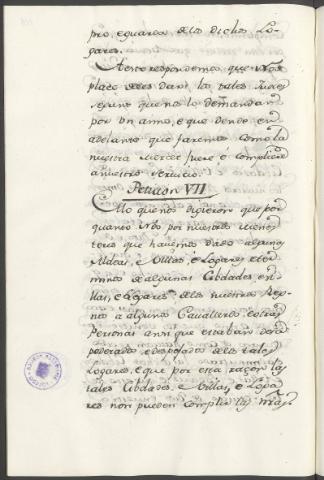 pro, e guarda de los Dichos Lo-
gares.
A esto respondemos que Nos
place de les Dar los tales Jueces
segunt que nos lo demandan
por un anno, e que dende en
adelante que faremos como la
nuestra merced fuere e compliere
a nuestro servicio.
Peticion VII
A lo que nos digieron que por
quanto Nos por nuestras menes-
teres que havemos dado algunas
Aldeas, e Villas, e Logares e ter-
minos de algunas Cibdades en
Villas, e Logares de los nuestros Rey-
nos a algunos Cavalleros e otras
Personas ansi que estaban desa-
poderados, e despojados de los tales
Logares, e que por esta raçon las
tales Cibdades, e Villas, e Loga-
res non pueden complir las nras